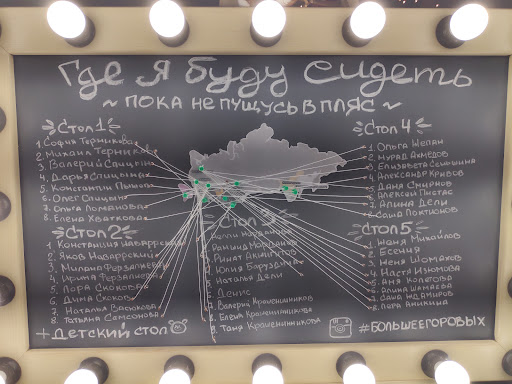 Где я буду сидеть
~ пока не пущусь в пляс ~
Стол 1
1. София Терникова
2. Михаил Терников
3. Валерий Спицын
4. Дарья Спицына
5. Константин
6. Олег Спицын
7. Ольга Ломанова
8. Елена Хваткова
Стол 2
1. Констанция Наваррская
2. Яков Наваррский
3. Милана Ферзалиева
4. Ирина Ферзалиева
5. Лора Скокова
6. Дима Скоков
7. Наталья Васюкова
8. Татьяна Самсонова
+ Детский стол
Стол 3
Рашид
Ринат
Юлия
Наталья Дели
Денис
7. Валерий Крашенинников
8. Елена Крашенинникова
9. Таня Крашенинникова
Стол 4
1. Ольга Шепан
2. Мурад Ахмедов
3. Елизавета
4. Александр Кривов
5. Даня Смирнов
6. Алексей Пустас
7. Алина Дели
8. Саша Локтионов
Стол 5
1. Женя Михайлов
2. Есения
3. Женя Шомахов
4. Настя Изюмова
5. Амя Колпова
6. Алина Шамаева
7. Саша Ждамиров
8. Лера Аникина
#большеегоровых